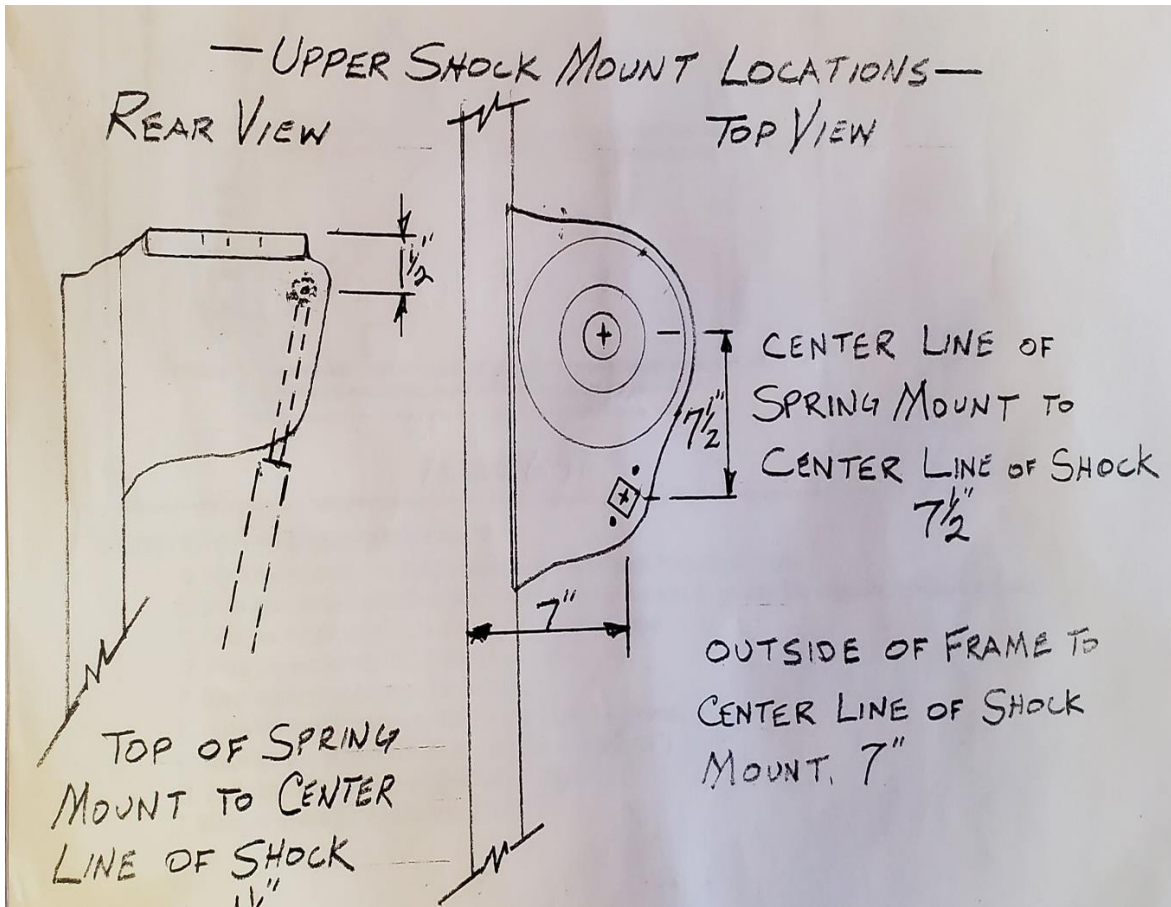 — UPPER SHOCK MOUNT LOCATIONS —
REAR VIEW
TOP VIEW
1½"
7½"
CENTER LINE OF
SPRING MOUNT TO
CENTER LINE OF SHOCK
7½"
7"
OUTSIDE OF FRAME TO
CENTER LINE OF SHOCK
MOUNT. 7"
TOP OF SPRING
MOUNT TO CENTER
LINE OF SHOCK